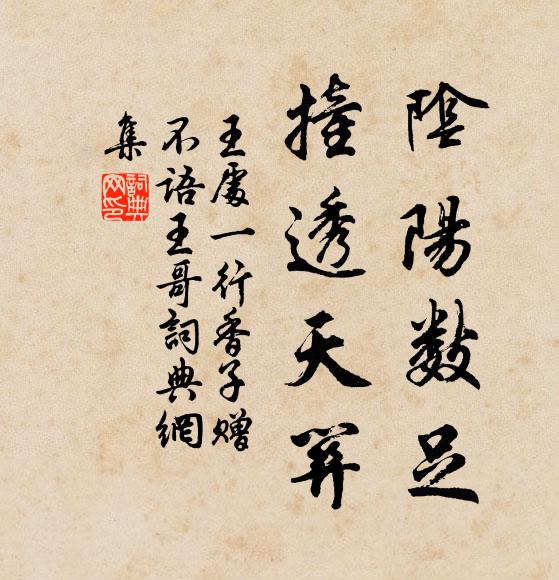 陰陽數足
撞透天關
王處一行香子贈
不語王哥詞典網
集
詞典網印